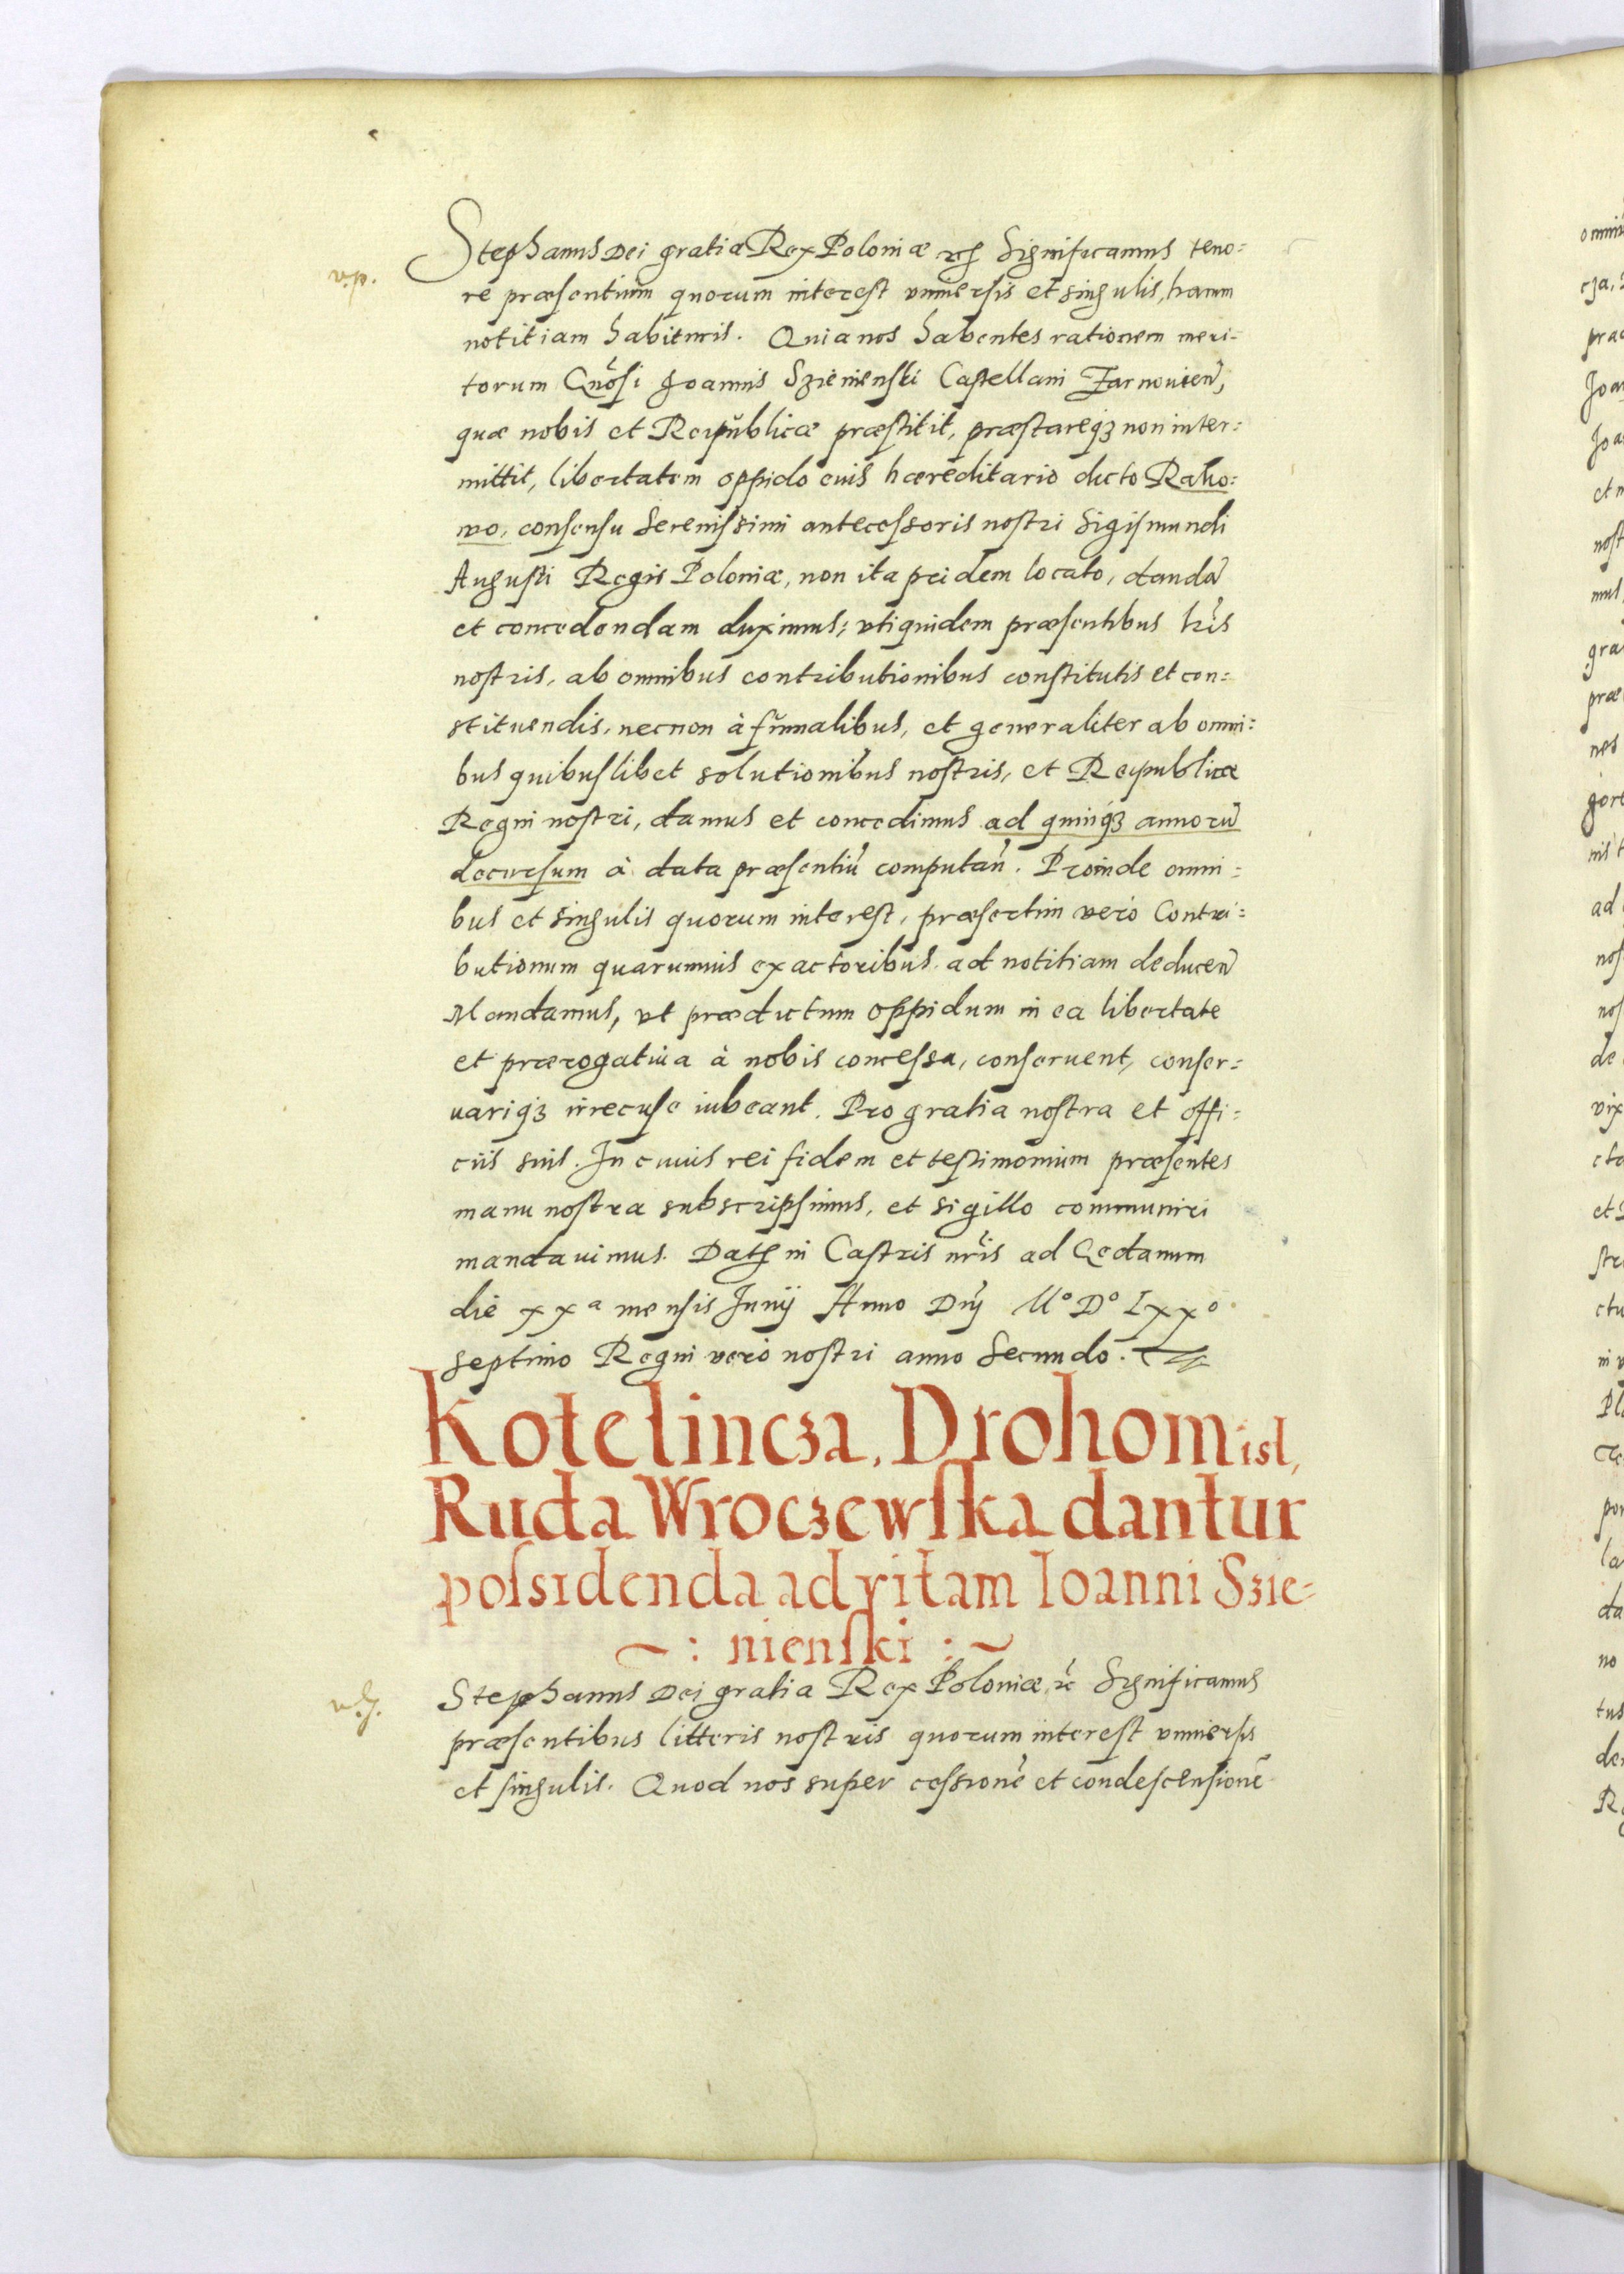 Stephanus Dei gratia Rex Poloniæ etc Significamus teno:
vip.
re præsentium quorum interest vniuersis et singulis, harum
notitiam habituris. Quia nos habentes rationem meri-
torum Gnosi Joannis Szienienski Castellani Zarnouien,
quæ nobis et Reipublicæ præstitit, præstareqȝ non inter:
mittit, libertatem oppido eius hæreditario dicto Rako:
wo, consensu Serenissimi antecessoris nostri Sigismundi
Augusti Regis Poloniæ, non ita pridem locato, dandã
et concedendam duximus; vtiquidem præsentibus lris
nostris, ab omnibus contributionibus constitutis et con:
stituendis, necnon à fumalibus, et generaliter ab omni:
bus quibuslibet solutionibus nostris, et Reipublicæ
Regni nostri, damus et concedimus ad quinqȝ annorũ
decursum à data præsentiũ computañ. Proinde omni:
bus et singulis quorum interest, præsertim verò Contri:
butionum quarumuis exactoribus ad notitiam deduceñ
Mandamus, vt prædictum oppidum in ea libertate
et prærogatiua à nobis concessa, conseruent, conser:
uariqȝ irrecuse iubeant. Pro gratia nostra et offi:
ciis suis. In cuius rei fidem et testimonium præsentes
manu nostra subscripsimus, et sigillo communiri
mandauimus. Dat in Castris nris ad Gedanum
die xxª mensis Junij Anno Dnj Mº Dº Lxxº
septimo Regni verò nostri anno Secundo.
Kotelincza, Drohomisl,
Ruda Wroczewska dantur
possidenda ad vitam Ioanni Szie-
~ : nienski : ~
Stephanus Dei gratia Rex Poloniæ, etc Significamus
præsentibus litteris nostris quorum interest vniuersis
et singulis. Quod nos super cessionẽ et condescensionẽ